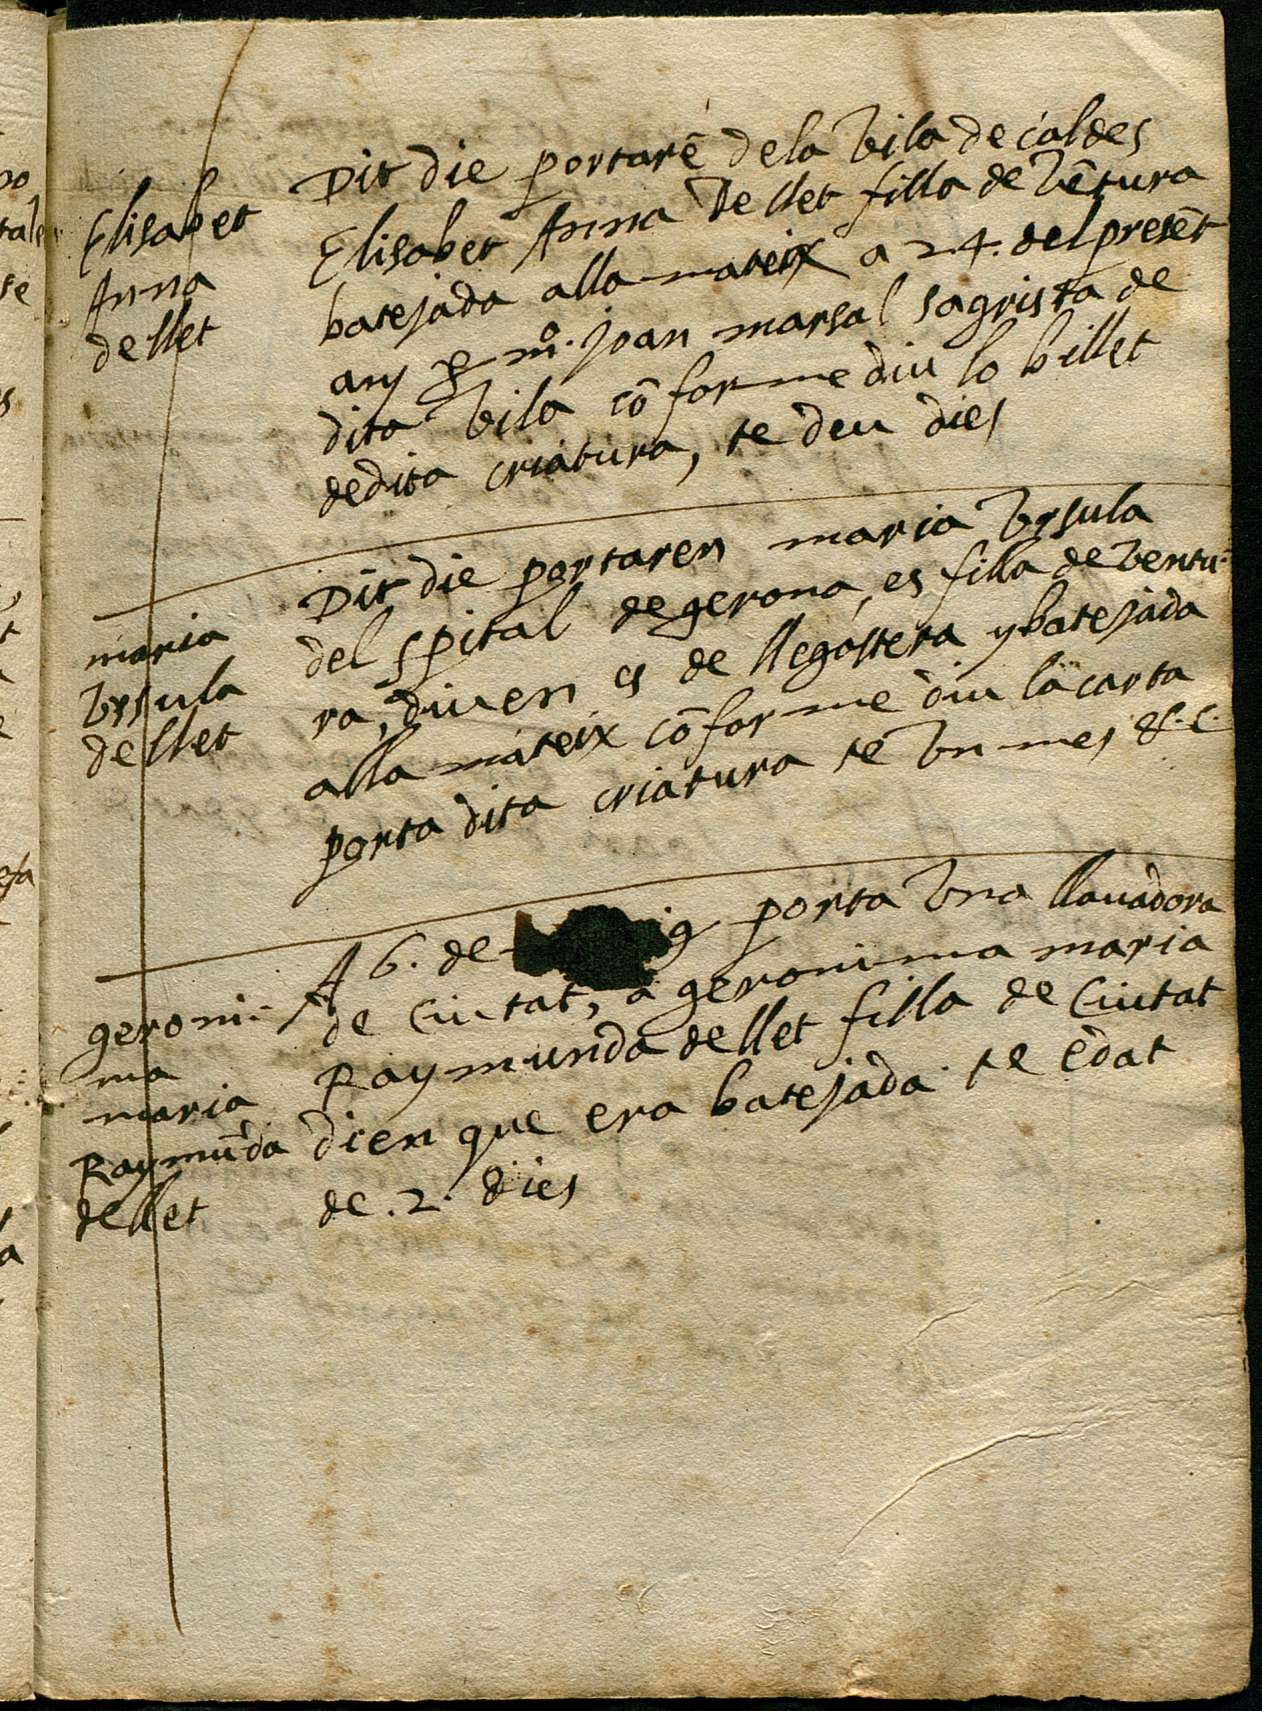 Elisabet
Anna
de llet
Dit die portarē dela Vila de caldes
Elisabet Anna de llet filla de vētura
batejada alla mateix a 24. del presēt
any p mº. Joan marsal sagrista de
dita Vila cōforme diu lo billet
dedita criatura, te deu dies
maria
Vrsula
de llet
Dit die portaren maria Vrsula
del spital de gerona, es filla de ventu-
ra, diuen es de llegostera y batejada
alla mateix cōforme diu la carta
porta dita criatura te vn mes &.c.
geroni-
ma
maria
Raymūda
de llet
A 6. de porta Vna llauadora
de Ciutat, a geronima maria
Raymunda de llet filla de Ciutat
dien que era batejada. te edat
de .2. dies